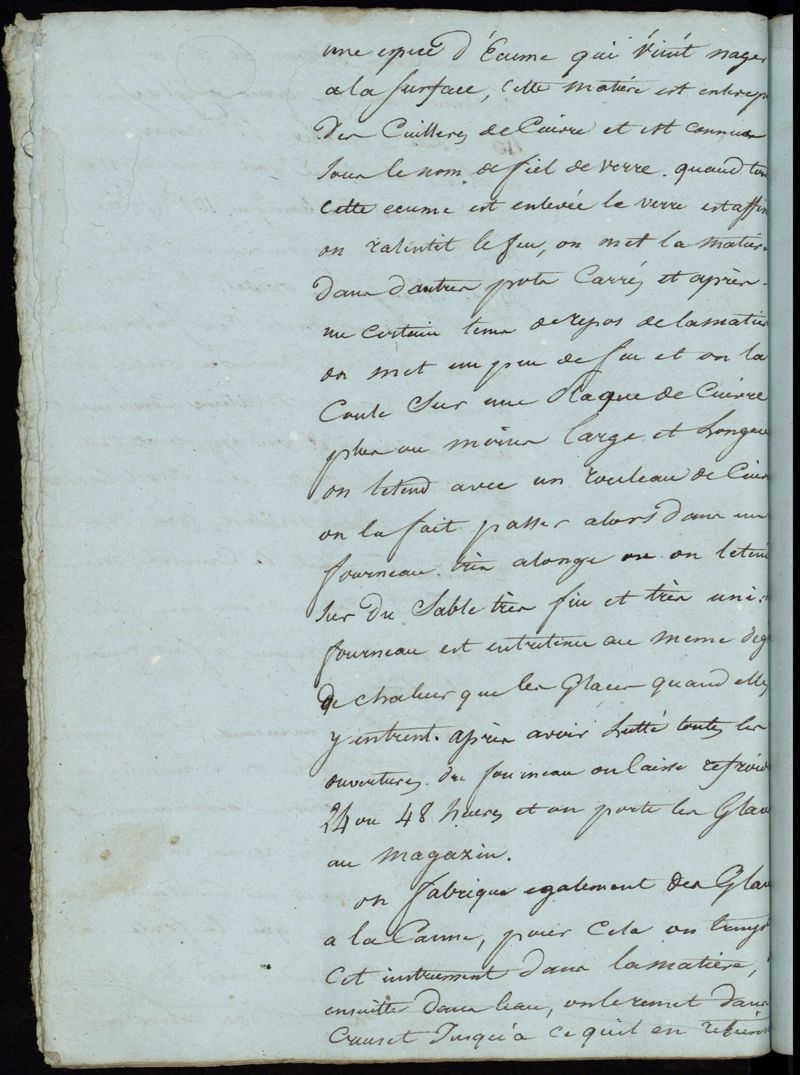 une espece d'Ecume qui vient nager
a la surface, Cette matiere est enlevé p
des Cuilleres de Cuivre et est connue
sous le nom de fiel de verre. quand tou
cette ecume est enlevée le verre est affin
on ralentit le feu, on met la matier
dans d'autres pots Carrés et après
un certain tems de repos de la matie
on met un peu de feu et on la
Coule sur une Plaque de Cuivre
plus ou moins large et Longue
on letend avec un rouleau de Cuiv
on la fait passer alors dans un
fourneau très alongé ou on letend
sur du Sable très fin et très uni.
fourneau est entretenu au meme deg
de chaleur que les Glaces quand elles
y entrent. après avoir Lutté toutes les
ouvertures du fourneau on laisse refroid
24 ou 48 heures et on porte les Glac
au magazin.
on fabrique egalement des Glac
a la Canne, pour Cela on tremp
Cet instrument dans la matière,
ensuitte dans leau, on le remet dans
Creuset Jusqu'à ce quil en retient